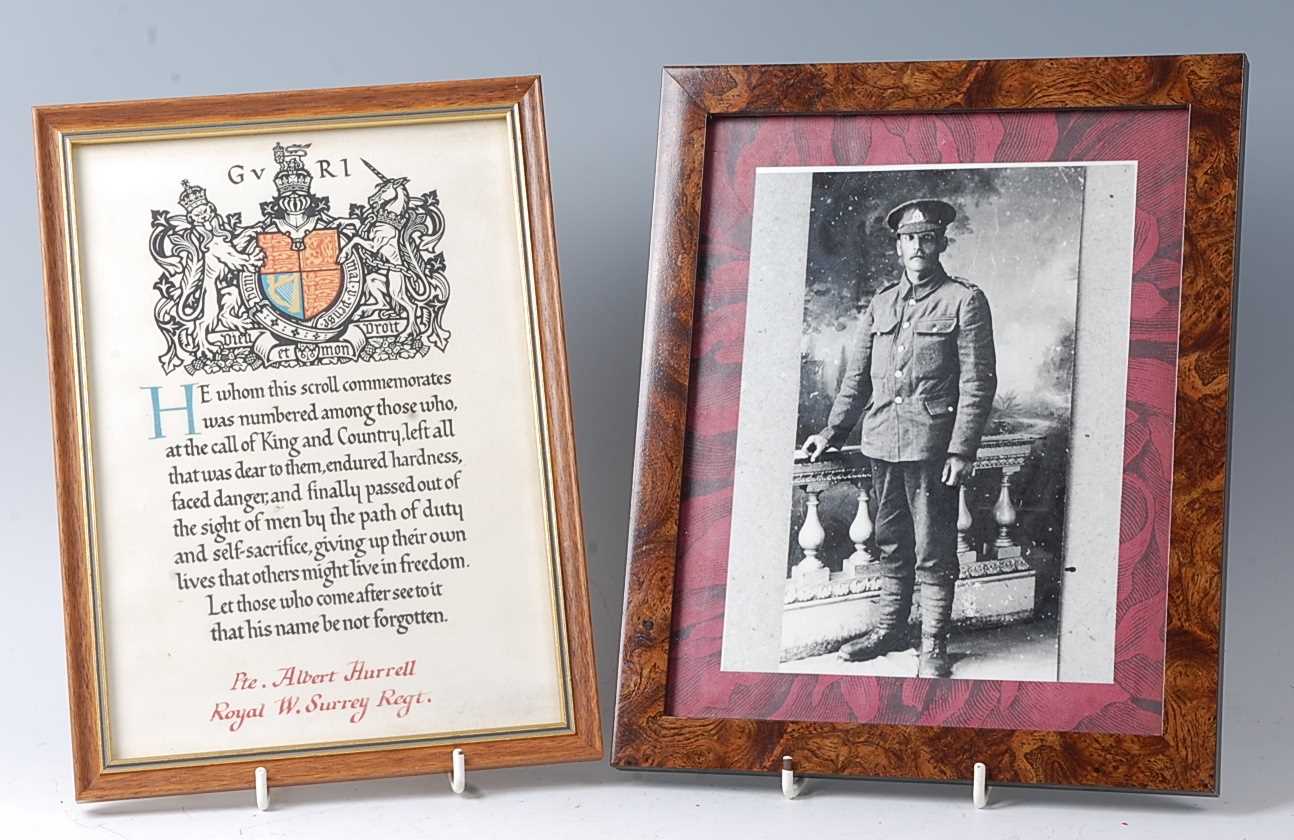 GV RI
Honi soit qui mal y pense
Dieu et mon Droit
HE whom this scroll commemorates
was numbered among those who,
at the call of King and Country, left all
that was dear to them, endured hardness,
faced danger, and finally passed out of
the sight of men by the path of duty
and self-sacrifice, giving up their own
lives that others might live in freedom.
Let those who come after see to it
that his name be not forgotten.
Pte. Albert Hurrell
Royal W. Surrey Regt.